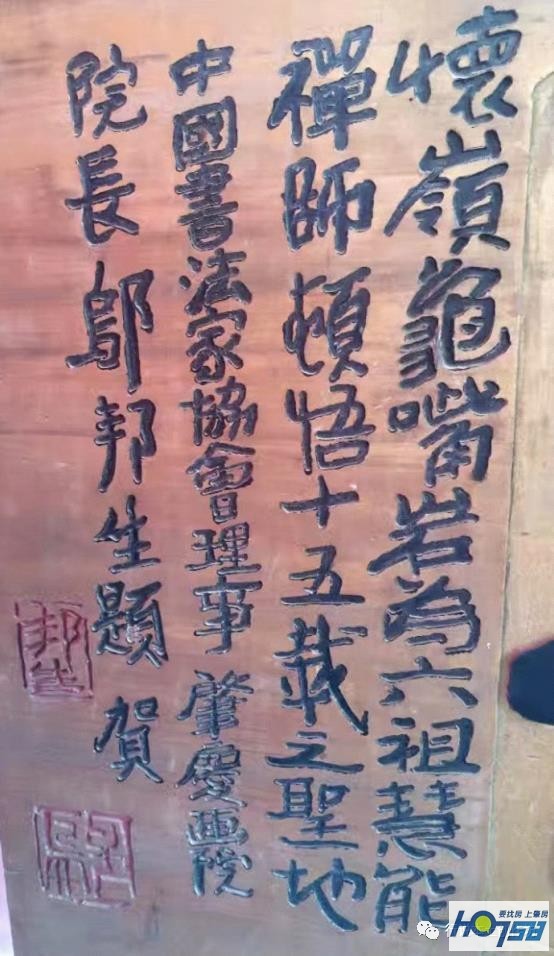 懷嶺龜嘴岩為六祖慧能
禪師頓悟十五載之聖地
中國書法家協會理事 肇慶畫院
院長 鄔邦生題 賀
邦生
要找房 上肇房
HO758